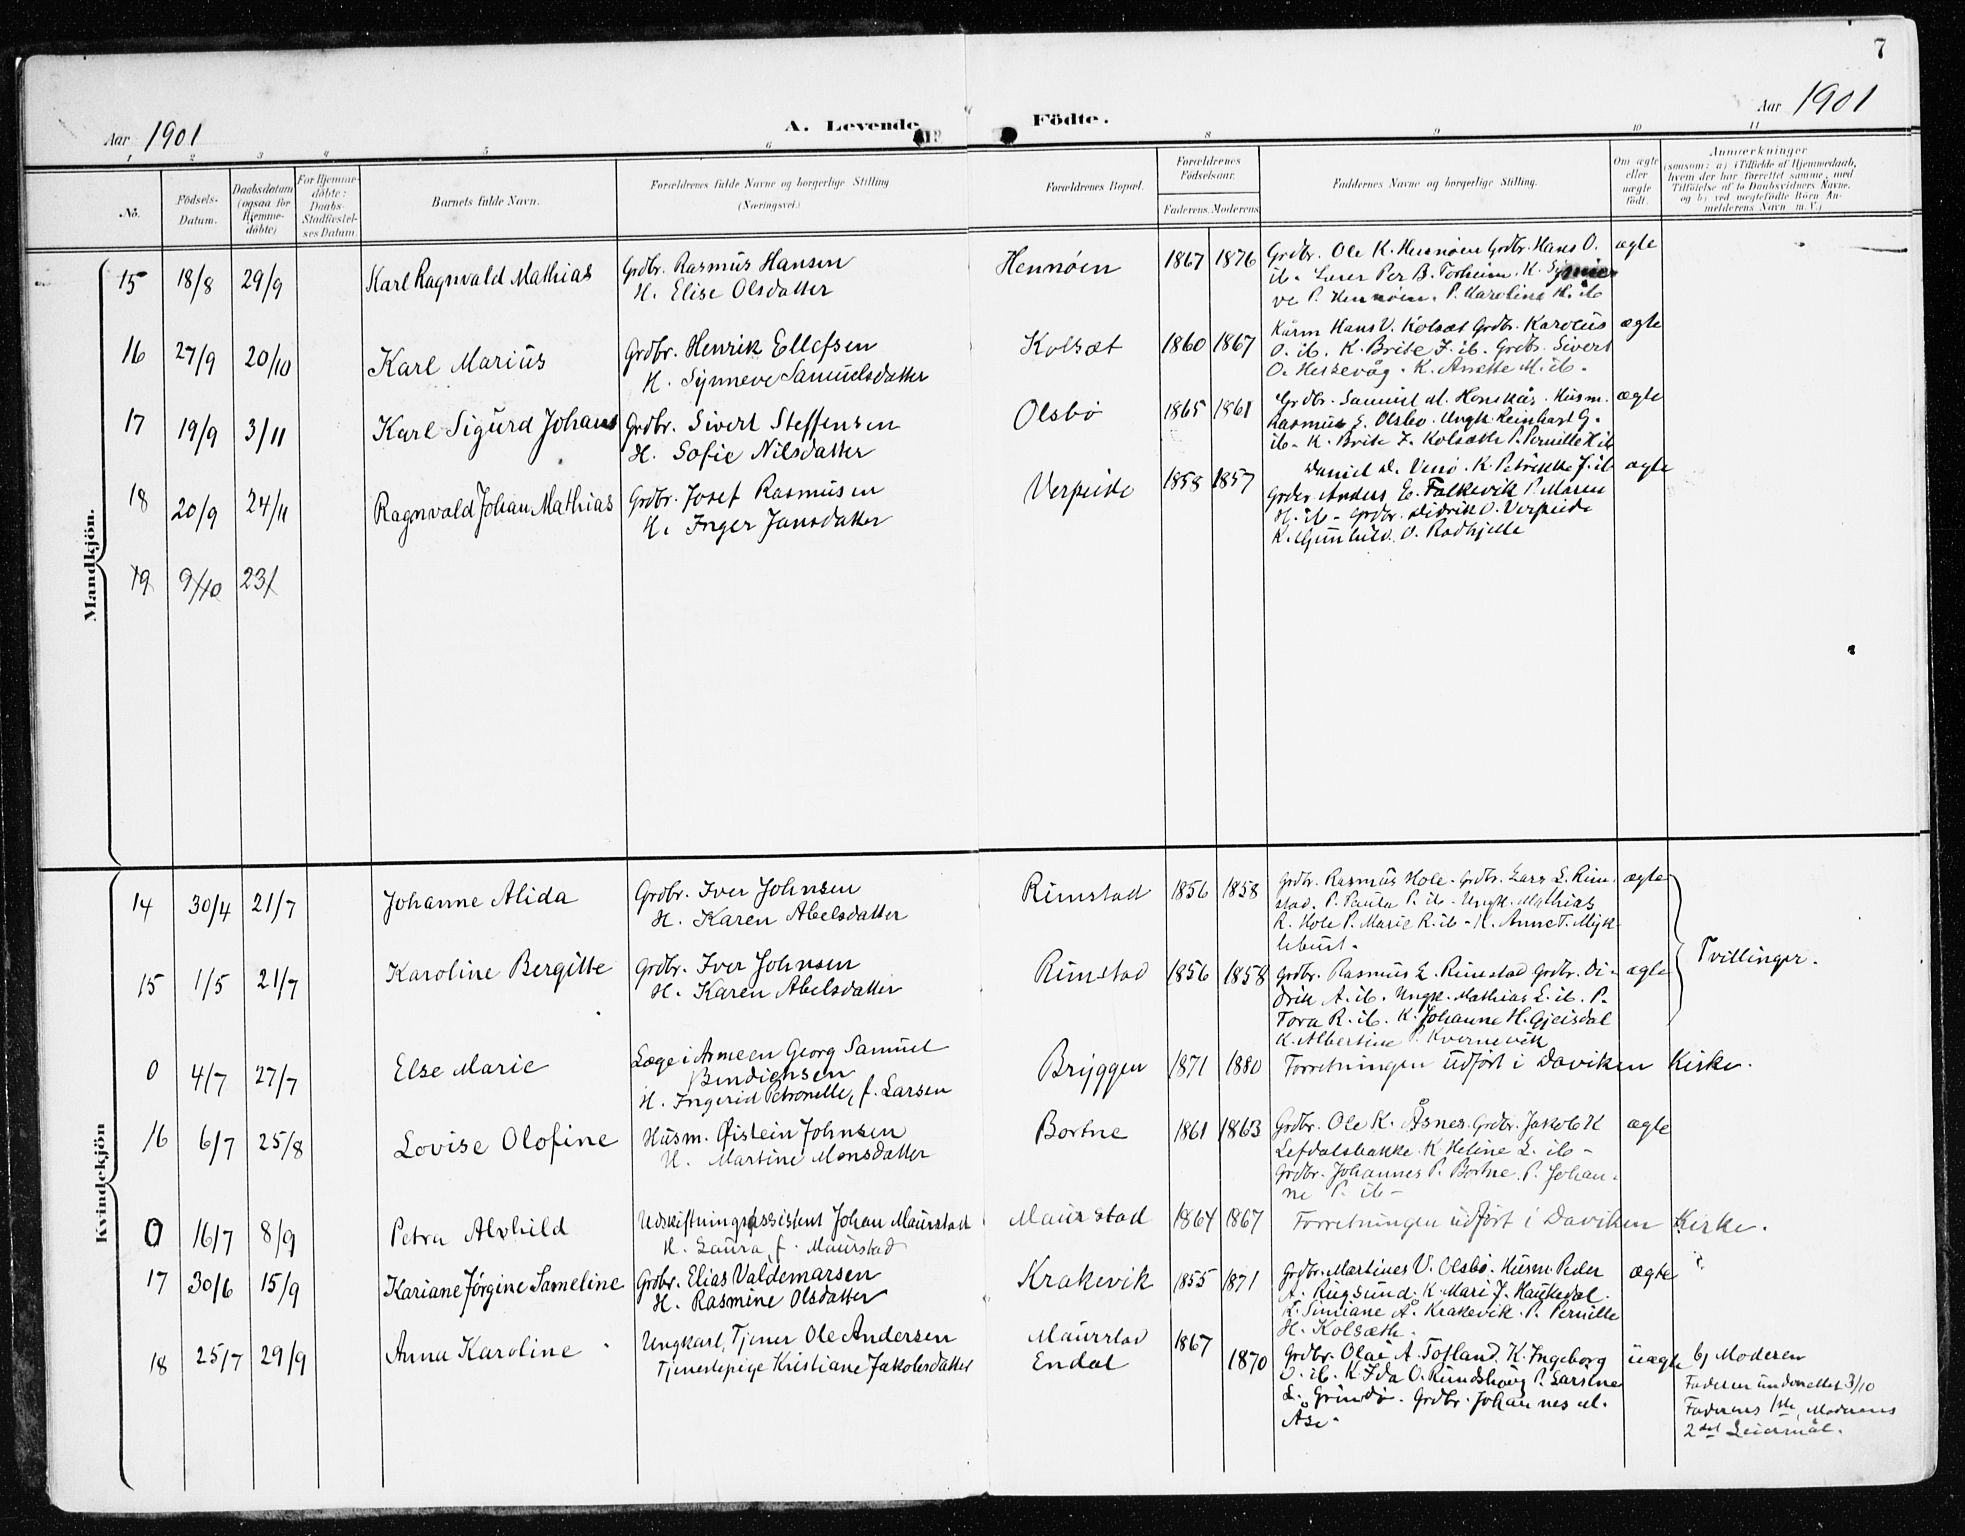 7
Aar 1901
A. Levende Födte.
Aar 1901
1 2 3 4 5 6 8 9 10 11
No.
Födsels-Datum.
Daabsdatum (ogsaa for Hjemme-döbte)
For Hjemme-döbte: Daabs-Stadfæstel-ses Datum.
Barnets fulde Navn.
Forældrenes fulde Navne og borgerlige Stilling (Næringsvei.)
Forældrenes Bopæl.
Forældrenes Födselsaar.
Faderens. Moderens
Faddernes Navne og borgerlige Stilling.
Om ægte eller uægte födt.
Anmærkninger
(saasom: a) i Tilfælde af Hjemmedaab,
hvem der har forrettet samme, med
Tilföielse af to Daabsvidners Navne.
og b) ved uægtefödte Börn An-
melderens Navn m. V.)
Mandkjön.
15 18/8 29/9 Karl Ragnvald Mathias
Grdbr. Rasmus Hansen
H. Elise Olsdatter
Hennøen 1867 1876
Grdbr. Ole K. Hennøen Grdbr. Hans O.
ib. Lærer Per B. Torheim. K. Synne
ve P. Hennøen. P. Karolina H. ib
ægte
16 27/9 20/10 Karl Marius
Grdbr. Henrik Ellefsen
H. Synneve Samuelsdatter
Kolsæt 1860 1867
Kårm Hans V. Kolsæt Grdbr. Karolus
O. ib. K. Brite J. ib. Grdbr. Sivert
O. Hessevåg. K. Anette M. ib.
ægte
17 19/9 3/11 Karl Sigurd Johans
Grdbr. Sivert Steffensen
H. Sofie Nilsdatter
Olsbø 1865 1861
Grdbr. Samuel M. Husm.
Rasmus S. Olsbø. Ungk. Reinhart G.
ib. K. Brite J. Kolsæth P. Pernille H. ib
ægte
18 20/9 24/11 Ragnvald Johan Mathias
Grdbr. Josef Rasmusen
H. Inger Jansdatter
Verpeide 1858 1857
Daniel D. K. Petrikke J. ib
Grdbr. Anders E. Falkevik P. Maren
H. ib - Grdbr. Didrik O. Verpeide
K. Gunhild O. Rodhjelle
ægte
19 9/10 23/
Kvindekjön
14 30/4 21/7 Johanne Alida
Grdbr. Iver Johnsen
H. Karen Abelsdatter
Rimstad 1856 1858
Grdbr. Rasmus Hole. Grdbr. Lars L. Rim-
stad. P. Paula P. ib - Ungk. Mathias
R. Hole P. Marie R. ib - K. Anne T. Myk-
lebust.
ægte
15 1/5 21/7 Karoline Bergitte
Grdbr. Iver Johnsen
H. Karen Abelsdatter
Rimstad 1856 1858
Grdbr. Rasmus L. Rimstad Grdbr. Di-
drik A. ib. Ungk. Mathias L. ib. P.
Tora R. ib. K. Johanne H. Gjeisdal
K. Albertine P. Kvernevik
ægte
Tvillinger.
0 4/7 27/7 Else Marie
Læge i Armeen Georg Samuel
Bendigtsen
H. Ingerid Petronelle, f. Larsen
Bryggen 1871 1880
Forretningen udført i Daviken Kirke.
16 6/7 25/8 Lovise Olofine
Husm. Øistein Johnsen
H. Martine Monsdatter
Bortne 1861 1863
Grdbr. Ole K. Åsnes. Grdbr. Jakob K
Lefdalsbakke. K Heline L. ib -
Grdbr. Johannes P. Bortne. P. Johan-
ne P. ib -
ægte
0 16/7 8/9 Petra Alvhild
Udskiftningsassistent Johan Maurstad
H. Laura f. Maurstad
Maurstad 1864 1867
Forretningen udført i Daviken Kirke.
17 30/6 15/9 Kariane Jørgine Sameline
Grdbr. Elias Valdemarsen
H. Rasmine Olsdatter
Krakevik 1855 1871
Grdbr. Martines V. Olsbø. Husm. Peder
A. Rugsund. K. Mari J. Haukedal.
K. Simiane Å. Krakevik. P. Pernille
H. Kolsæth.
ægte
18 25/7 29/9 Anna Karoline
Ungkarl, Tjener Ole Andersen
Tjenestepige Kristiane Jakobsdatter
Maurstad
Endal
1867 1870
Grdbr. Olai A. Tofland. K. Ingeborg
O. ib. K. Ida O. Rundshaug P. Larsine
L. Grindø. Grdbr. Johannes M.
Ase.
uægte
b) Moderen
Faderen 3/10
Faderens 1ste, Moderens
2det Leiermål.